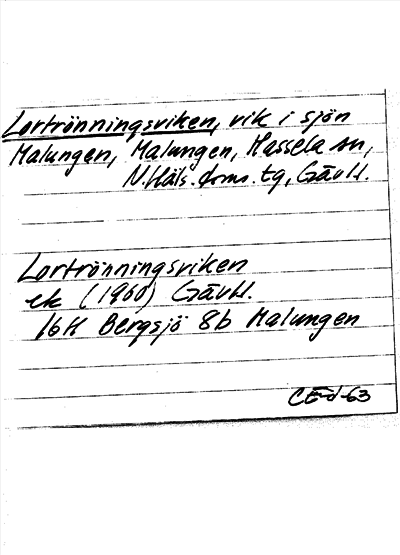 Lortrönningsviken, vik i sjön
Malungen, Malungen, Hassela sn,
N.Häls. doms. tg, Gävll.
Lortrönningsviken
ek (1960) Gävll.
16H Bergsjö 8b Malungen
CE-d-63